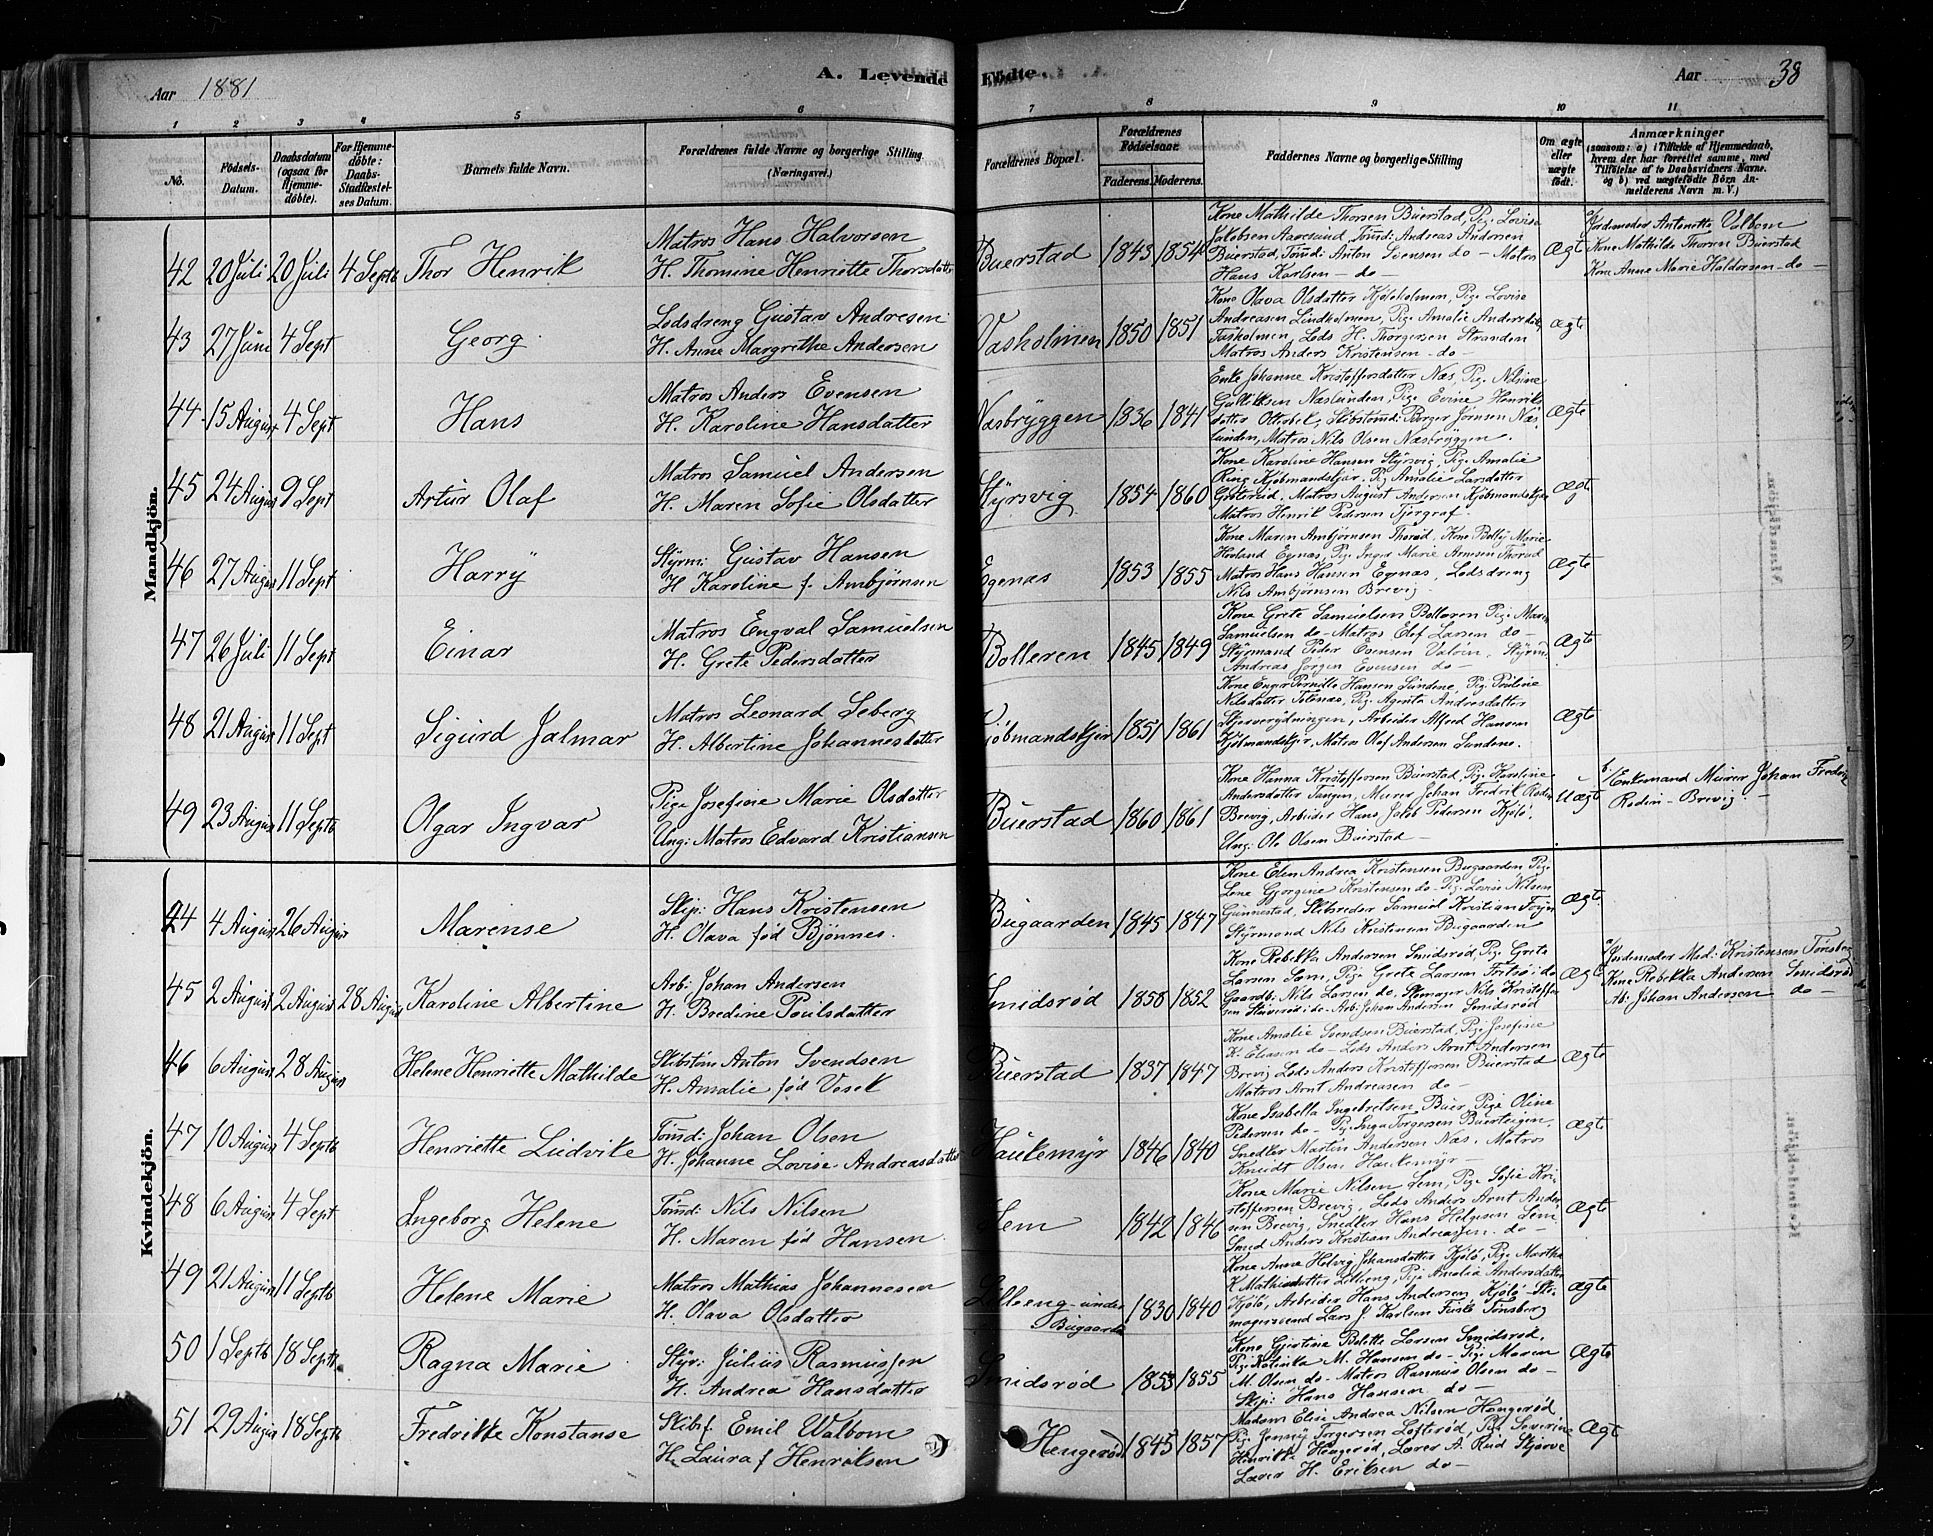 Aar 1881
A. Levende Födte.
Aar 38
1 2 3 4 5 6 7 8 9 10 11
No.
Födsels-Datum.
Daabsdatum (ogsaa for Hjemme-döbte).
For Hjemme-döbte: Daabs-Stadfæstel-ses Datum.
Barnets fulde Navn.
Forældrenes fulde Navne og borgerlige Stilling (Næringsvei.)
Forældrenes Bopæl.
Forældrenes Födselsaar.
Faderens. Moderens.
Faddernes Navne og borgerlige Stilling
Om ægte eller uægte födt.
Anmærkninger
(saasom: a) i Tilfælde af Hjemmedaab, hvem der har forrettet samme, med Tilföielse af to Daabsvidners Navne. og b) ved uægtefödte Börn An-melderens Navn m. V.)
Mandkjön.
42 20 Juli 20 Juli 4 Septb Thor Henrik
Matros Hans Halvorsen
H. Thomine Henriette Thorsdatter
Buerstad 1843 1854
Kone Mathilde Thorsen Buerstad, Pig. Lovise
Jakobsen Aarøsund, Tømd: Andreas Andersen
Buerstad, Tømd: Anton Svensen do - Matros
Hans Karlsen - do -
Ægte
a/ Jordemoder Antonette Valbom
Kone Mathilde Thorsen Buerstad
Kone Anne Marie Haldorsen - do -
43 27 Juni 4 Sept Georg
Lodsdreng Gustav Andresen
H. Anne Margrethe Andersen
Vasholmen 1850 1851
Kone Olava Olsdatter Kjøleholmen, Pige Lovise
Andreasen Lindholmen, Pige Amalie Andersdat
Fuskholmen, Lods H. Thorgersen Stranden
Matros Anders Kristensen - do -
Ægte
44 15 August 4 Sept Hans
Matros Anders Evensen
H. Karoline Hansdatter
Næsbryggen 1836 1841
Enke Johanne Kristoffersdatter Næs, Pig. Nilsine
Gulliksen Næslunden, Pige Evine Henriks
datter Otterbek, Skibstømd: Borger Jørnsen Næs
lunden, Matros Nils Olsen Næsbryggen.
Ægte
45 24 August 9 Sept Artur Olaf
Matros Samuel Andersen
H. Maren Sofie Olsdatter
Styrsvig 1854 1860
Kone Karoline Hansen Styrsvig, Pig. Amalie
Ring Kjøbmandskjær, Pig Amalie Larsdatter
Grøterød, Matros August Andersen Kjøbmandskjær
Matros Henrik Pedersen Tjergraf.
Ægte
46 27 August 11 Sept Harry
Styrm: Gustav Hansen
H. Karoline f. Ambjørnsen
Egenæs 1853 1855
Kone Maren Ambjørnsen Thorød, Kone Bolly Marie
Hovland Egnæs, Pig. Inger Marie Arnesen Thorød
Matros Hans Hansen Egenæs, Lodsdreng
Nils Ambjørnsen Brevig.
Ægte
47 26 Juli 11 Sept Einar
Matros Engval Samuelsen
H. Grete Pedersdatter
Bolleren 1845 1849
Kone Grete Samuelsen Bolleren Pige Maren
Samuelsen do - Matros Elef Larsen do -
Styrmand Peder Evensen Valøin, Styrm:
Andreas Jørgen Evensen do -
Ægte
48 21 August 11 Sept Sigurd Jalmar
Matros Leonard Seberg
H. Albertine Johannesdatter
Kjøbmandskjær 1851 1861
Kone Enger Pernille Hansen Sundene, Pig. Pouline
Nilsdatter Totenæs, Pig. Agenta Andresdatter
Skjerverødningen, Arbeider Alfred Hansen
Kjøbmandskjær, Matros Olaf Andersen Sundene.
Ægte
49 23 August 11 Septb Olgar Ingvar
Pige Josefine Marie Olsdatter
Ung: Matros Edvard Kristiansen
Buerstad 1860 1861
Kone Hanna Kristoffersen Buerstad, Pig. Karoline
Andersdatter Tangen, Murer Johan Fredrik Rodin
Brevig, Arbeider Hans Jakob Pedersen Kjølø,
Ung: Ole Olsen Buerstad -
Uægte
b. Enkemand Murer Johan Fredrik
Rodin - Brevig. -
Kvindekjön.
44 4 August 26 August Marense
Skip: Hans Kristensen
H. Olava fød Bjønnes.
Bugaarden 1845 1847
Kone Elen Andrea Kristensen Bugaarden Pig.
Lene Gjorgine Kristensen do - Pig. Lovise Nilsen
Gunnestad, Skibsreder Samuel Kristian Foyn
Styrmand Nils Kristensen Bugaarden
Ægte.
45 2 August 2 August 28 August Karoline Albertine
Arb: Johan Andersen
H. Bredine Poulsdatter
Smidsrød 1858 1852
Kone Rebekka Andersen Smidsrød, Pig. Grete
Larsen Sem, Pige Grete Larsen Fritsø i do
Gaardbr. Nils Larsen do, Skomager Nils Kristoffer
sen Stuverød i do - Arb: Johan Andersen Smidsrød
Ægte
a/ Jordemoder Mad: Kristensen Tønsberg
Kone Rebekka Andersen Smidsrød
Ab: Johan Andersen do -
46 6 August 28 August Helene Henriette Mathilde
Skibstøm Anton Svendsen
H. Amalie fød Vosek
Buerstad 1837 1847
Kone Amalie Svendsen Buerstad, Pige Josefine
K. Eliasen do - Lods Anders Arnt Andersen
Brevig Lods Anders Kristoffersen Buerstad
Matros Arnt Andreasen do -
Ægte
47 10 August 4 Septb Henriette Ludvike
Tømd: Johan Olsen
H. Johanne Lovise Andreasdatter
Haukemyr 1846 1840
Kone Isabella Ingebretsen, Buer, Pige Oline
Pedersen do - Pig. Inga Torgersen Buersteigen,
Snedker Martin Andersen Næs, Matros
Knudt Olsen Haukemyr -
Ægte
48 6 August 4 Sept Ingeborg Helene
Tømd: Nils Nilsen
H. Maren fød Hansen.
Sem 1842 1846
Kone Marie Nilsen Sem, Pige Sofie Kri-
stoffersen Brevig, Lods Anders Arnt Ander
sen Brevig, Snedker Hans Helgesen Sem,
Smed Anders Kristian Andreassen. do -
Ægte
49 21 August 11 Septb Helene Marie
Matros Mathias Johannesen
H. Olava Olsdatter
Lilleeng under Bugaarden 1830 1840
Kone Anne Helvig Johansdatter Kjølø, Pige Martha
K. Mathisdatter Lilleeng, Pige Amalia Andersdatter
Kjølø, Arbeider Hans Andersen Kjølø - Sko
magersvend Lars J. Karlsen Fuskø Tønsberg
Ægte
50 1 Septb 18 Septb. Ragna Marie
Styr: Julius Rasmussen
H. Andrea Hansdatter
Smidsrød 1853 1855
Kone Gjertine Bolette Larsen Smidsrød,
Pige Kalinka M. Hansen do - Pige Maren
M. Olsen do - Matros Rasmus Olsen do -
Skip: Hans Hansen do -
Ægte
51 29 August 18 Septb Fredrikke Konstanse
Skibsf. Emil Walbom
H. Laura f Henriksen
Hengerød 1845 1857
Madam Elise Andrea Nilsen Hengerød
Pig. Jenny Torgersen Lofterød, Pig. Severine
Henrikke Hengerød, Lærer A. Rud Skjerve
Lærer H. Eriksen do -
Ægte